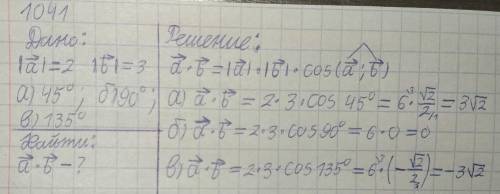 1041
Дано:
|a⃗|=2 |b⃗|=3
а) 45°; б) 90°;
в) 135°
Найти:
a⃗·b⃗-?
Решение:
a⃗·b⃗=|a⃗|·|b⃗|·cos(a⃗;b⃗)
а) a⃗·b⃗=2·3·cos 45°=6·√2/2=3√2
б) a⃗·b⃗=2·3·cos 90°=6·0=0
в) a⃗·b⃗=2·3·cos 135°=6·(-√2/2)=-3√2